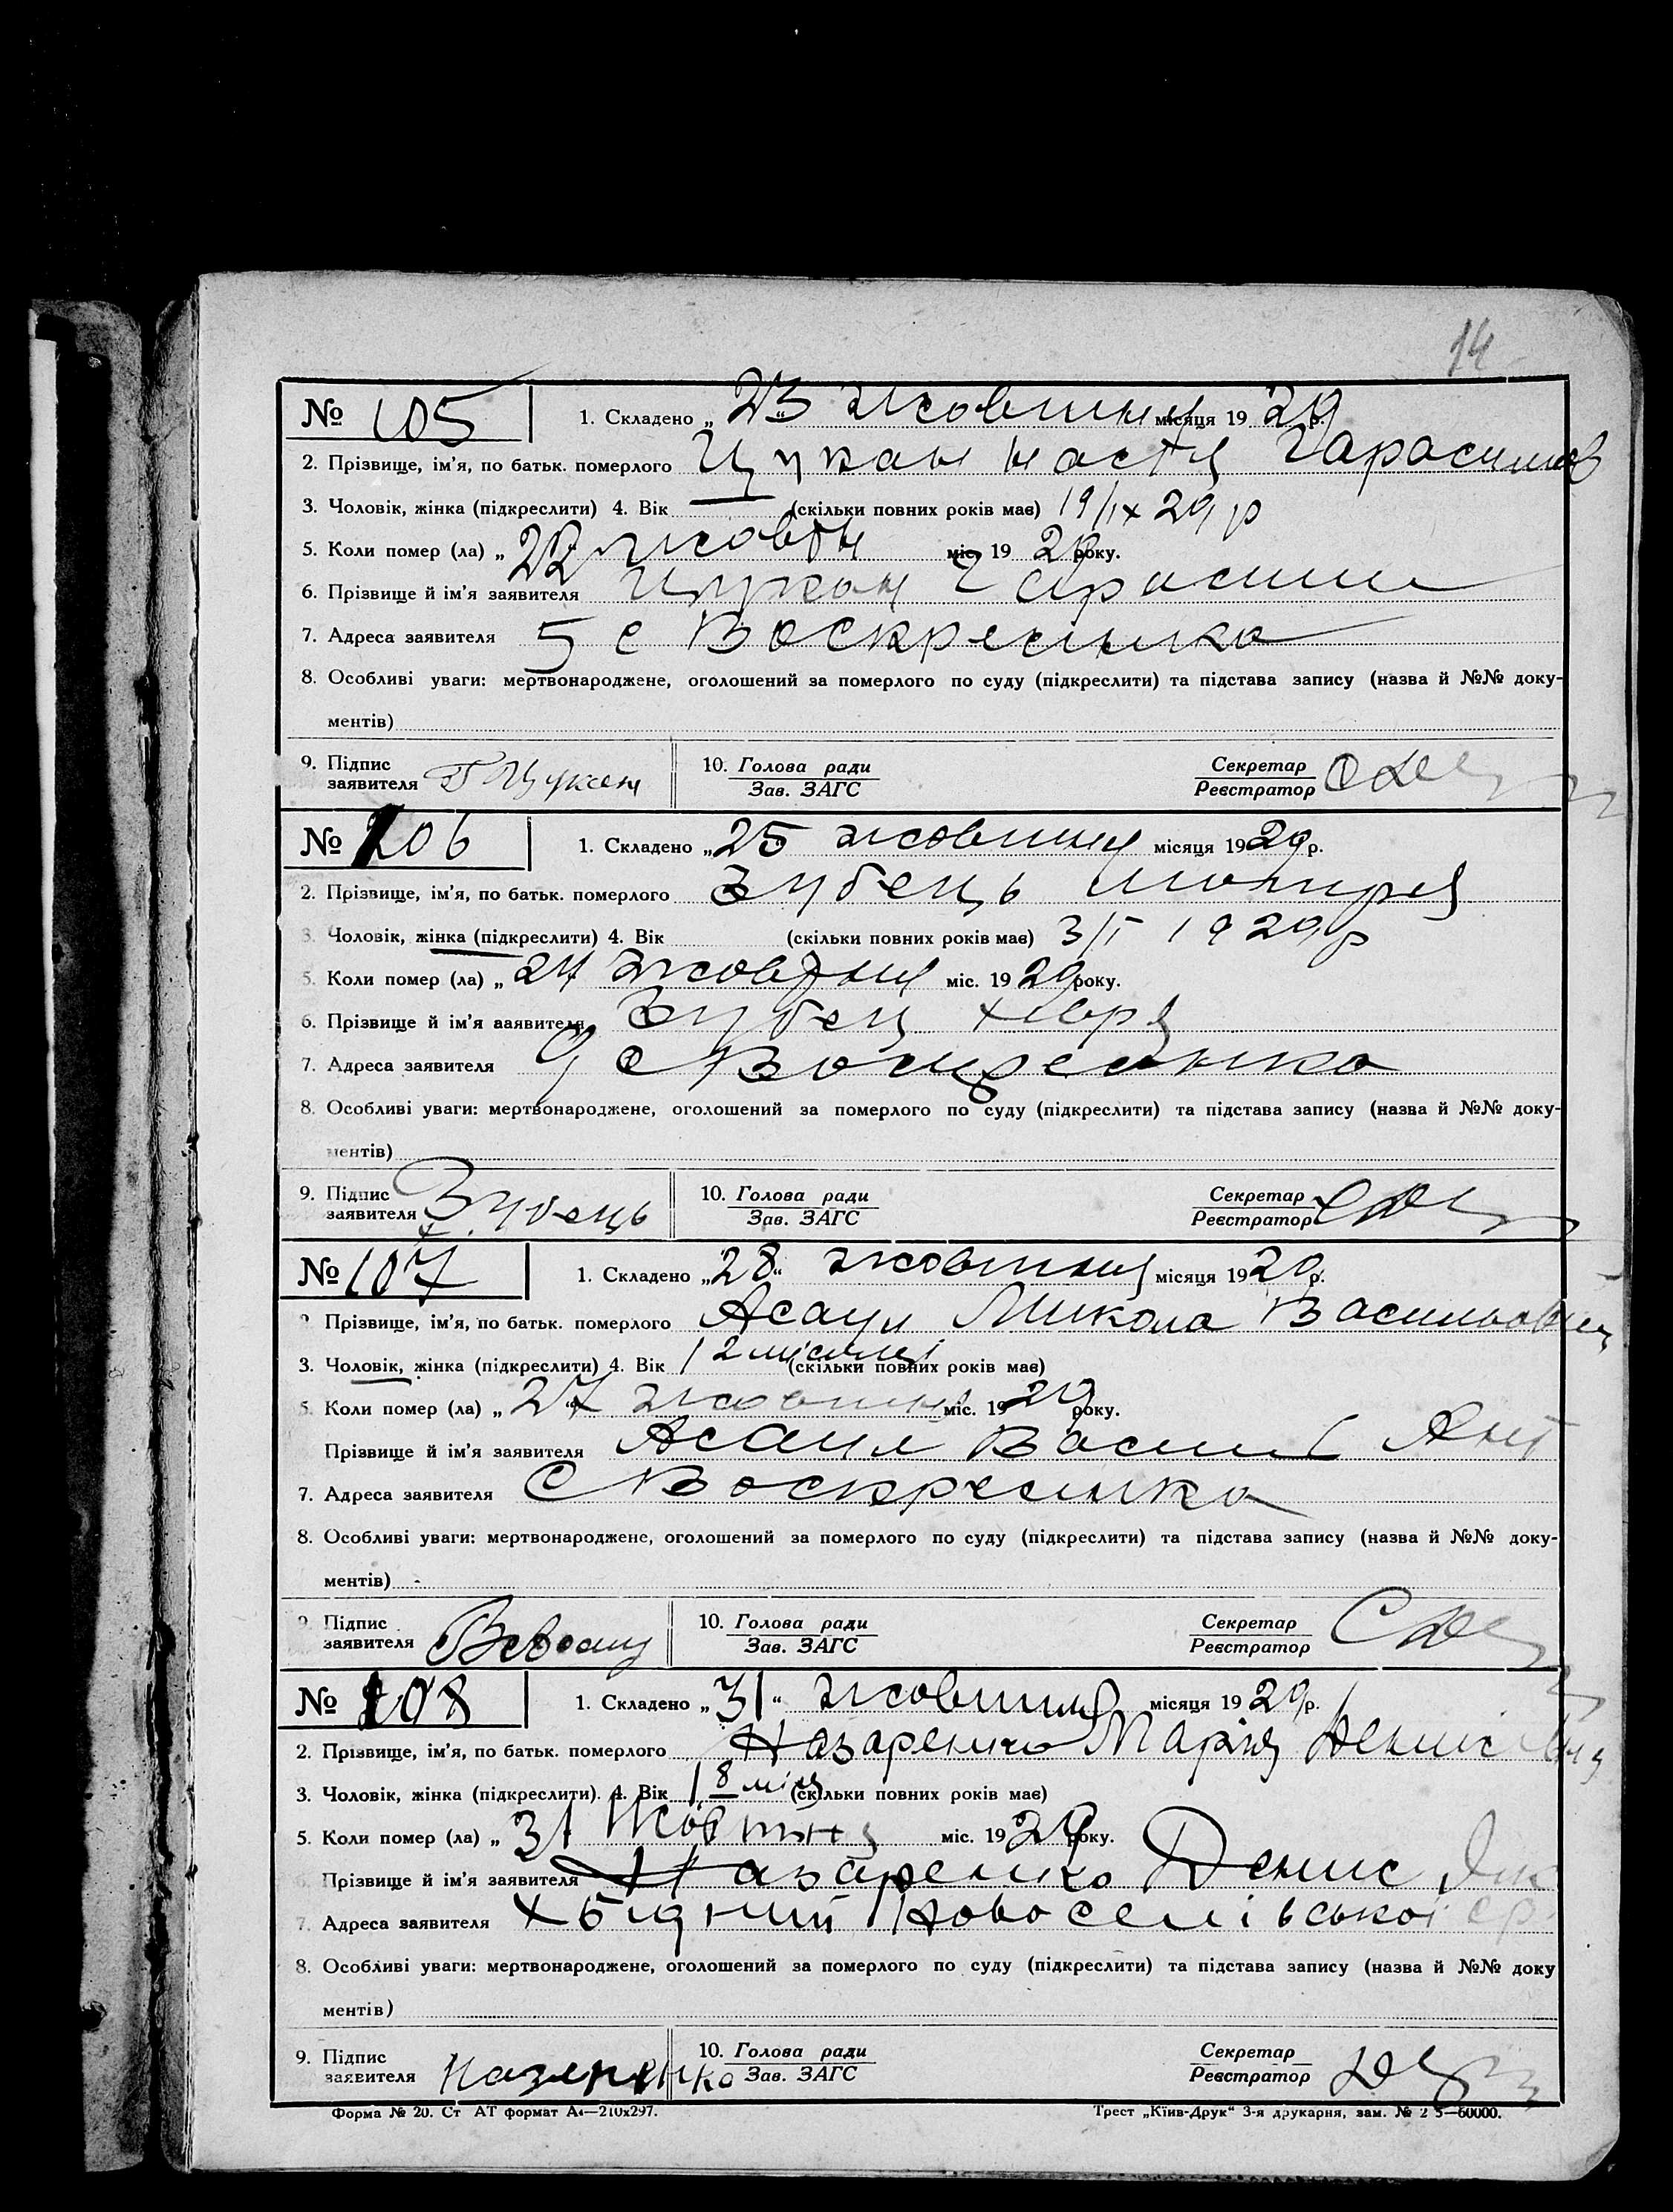 14
№ 105 1. Складено „23“ жовтня місяця 1929 р.
2. Прізвище, ім'я, по батьк. померлого Цукан Настя Гарасимов
3. Чоловік, жінка (підкреслити) 4. Вік (скільки повних років має) 19/ІХ 29 р
5. Коли помер (ла) „22 жовтн міс. 1929 року.
6. Прізвище й ім'я заявителя Цукан Гарасим
7. Адреса заявителя 5 с Воскресінка
8. Особливі уваги: мертвонароджене, оголошений за померлого по суду (підкреслити) та підстава запису (назва й №№ доку-
ментів)
9. Підпис заявителя Г Цукан 10. Голова ради Секретар
Зав. ЗАГС Реєстратор
№ 106 1. Складено „25 жовтня місяця 1929 р.
2. Прізвище, ім'я, по батьк. померлого Зубець
3. Чоловік, жінка (підкреслити) 4. Вік (скільки повних років має) 3/І 1929 р
5. Коли помер (ла) „24 жовтня міс. 1929 року.
6. Прізвище й ім'я заявителя Зубец Хевря
7. Адреса заявителя 9 с Воскресінка
8. Особливі уваги: мертвонароджене, оголошений за померлого по суду (підкреслити) та підстава запису (назва й №№ доку-
ментів)
9. Підпис заявителя Зубець 10. Голова ради Секретар
Зав. ЗАГС Реєстратор
№ 107 1. Складено „28“ жовтня місяця 1929 р.
2. Прізвище, ім'я, по батьк. померлого Асаул Микола Васильович
3. Чоловік, жінка (підкреслити) 4. Вік 2 місяці (скільки повних років має)
5. Коли помер (ла) „27 жовтня міс. 1929 року.
Прізвище й ім'я заявителя Асаул Васил Ант
7. Адреса заявителя С Воскресінка
8. Особливі уваги: мертвонароджене, оголошений за померлого по суду (підкреслити) та підстава запису (назва й №№ доку-
ментів)
9. Підпис заявителя 10. Голова ради Секретар
Зав. ЗАГС Реєстратор
№ 108 1. Складено „31“ жовтня місяця 1929 р.
2. Прізвище, ім'я, по батьк. померлого Назаренко Марія Денисівна
3. Чоловік, жінка (підкреслити). 4. Вік 8 міся (скільки повних років має)
5. Коли помер (ла) „31 жовтня міс. 1929 року.
Прізвище й ім'я заявителя Назаренко Денис Як
7. Адреса заявителя Х Бідний Новоселівської ср.
8. Особливі уваги: мертвонароджене, оголошений за померлого по суду (підкреслити) та підстава запису (назва й №№ доку
ментів)
9. Підпис заявителя Назаренко 10. Голова ради Секретар
Зав. ЗАГС Реєстратор
Форма № 20. Ст АТ формат А4—210х297. Трест „Київ-Друк“ 3-я друкарня, зам. № 2 5—60000.